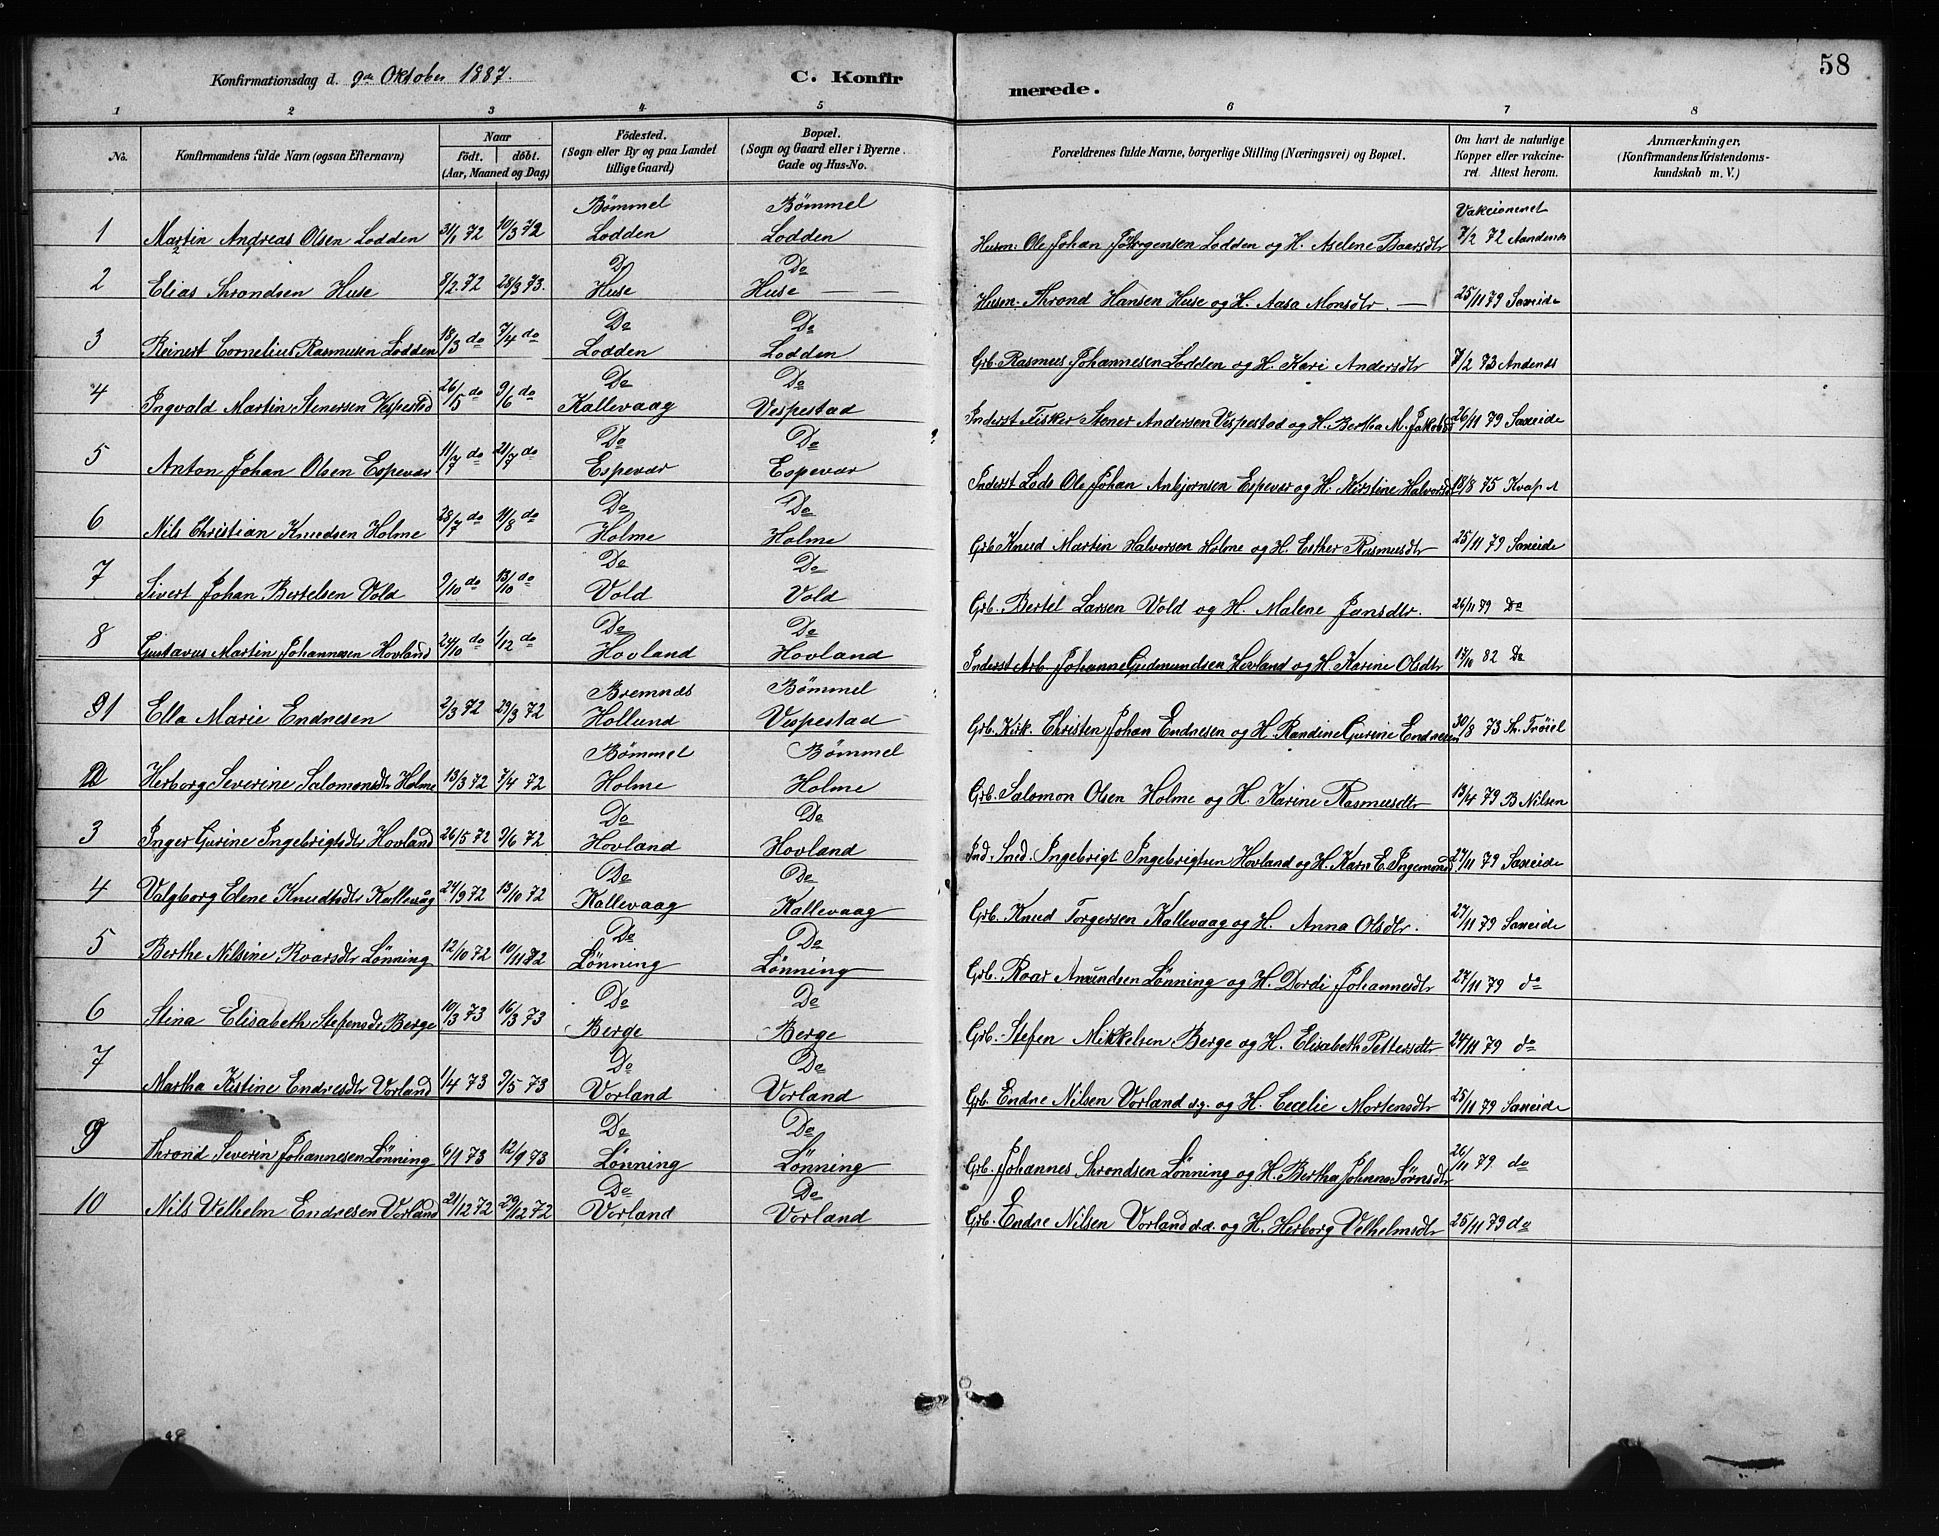 58
Konfirmationsdag d. 9de Oktober 1887. C. Konfirmerede.
1 2 3 4 5 6 7 8
No. Konfirmandens fulde Navn (ogsaa Efternavn) Naar født. døbt. (Aar, Maaned og Dag) Fødested. (Sogn eller By og paa Landet tillige Gaard) Bopæl. (Sogn og Gaard eller i Byerne Gade og Hus-No. Forældrenes fulde Navne, borgerlige Stilling (Næringsvei) og Bopæl. Om havt de naturlige Kopper eller vakcineret. Attest herom. Anmærkninger, (Konfirmandens Kristendomskundskab m. V.)
Bömmel Bömmel Vakcioneret
1 Martin Andreas Olsen Lodden 31/1 72 10/3 72 Lodden Lodden Husm: Ole Johan Jörgensen Lodden og H. Aselene Baarsdtr 7/2 72
Do Do
2 Elias Throndsen Huse 8/2 72 28/3 73. Huse Huse Husm. Thrond Hansen Huse og H. Aasa Monsdtr. 25/11 79 Saxeide
Do Do
3 Reinert Cornelius Rasmusen Lodden 18/3 do 7/4 do Lodden Lodden Grb. Rasmus Johannesen Lodden og H. Kari Andersdtr 7/2 73
Do Do
4 Ingvald Martin Stenersen Vespestad 26/5 do 9/6 do Kallevaag Vespestad Inderst Fisker Stener Andersen Vespestad og H. Bertha M. 26/11 79 Saxeide
Do Do
5 Anton Johan Olsen Espevær 11/7 do 21/7 do Espevær Espevær Inderst Lods Ole Johan Anbjørnsen Espevær og H. Kirstine 18/8 75
Do Do
6 Nils Christian Knudsen Holme 28/7 do 11/8 do Holme Holme Grb Knud Martin Halversen Holme og H. Esther Rasmusdtr 25/11 79 Saxeide
Do Do
7 Sivert Johan Bertelsen Vold 9/10 do 13/10 do Vold Vold Grb. Bertel Larsen Vold og H. Malene Jansdtr. 26/11 79 Do
Do Do
8 Gustavus Martin Johannesen Hovland 24/10 do 1/12 do Hovland Hovland Inderst Arb. Johanne Gudmundsen Hovland og H. Karine Olsdtr 17/10 82 Do
Bremnæs Bömmel
1 Ella Marie Endresen 2/3 72 29/3 72 Hollund Vespestad Grb. Kirk. Christen Johan Endresen og H. Randine Gurine Endresen 30/8 73
Bömmel Bömmel
2 Herborg Severine Salomonsdtr Holme 13/3 72 7/4 72 Holme Holme Grb. Salomon Olsen Holme og H. Karine Rasmusdtr 13/4 79 B Nilsen
Do Do
3 Inger Gurine Ingebrigtsdtr Hovland 26/5 72 9/6 72 Hovland Hovland Ind. Sned. Ingebrigt Ingebrigtsen Hovland og H. Karn E. 27/11 79 Saxeide
Do Do
4 Valgborg Elene Knudtsdtr Kallevåg 24/9 72 13/10 72 Kallevaag Kallevaag Grb. Knud Torgersen Kallevaag og H. Anna Olsdtr. 27/11 79 Saxeide
Do Do
5 Berthe Nilsine Roarsdtr Lønning 12/10 72 10/11 72 Lønning Lønning Grb. Roar Amundsen Lønning og H. Dordi Johannesdtr 27/11 79 do
Do Do
6 Stina Elisabeth Stefensdr Berge 10/3 73 16/3 73 Berge Berge Grb. Stefen Mikkelsen Berge og H. Elisabeth Pettersdtr 24/11 79 do
Do Do
7 Martha Kistine Endresdtr Vorland 1/4 73 9/5 73 Vorland Vorland Grb. Endre Nilsen Vorland d.y. og H. Cecelie Mortensdtr 25/11 79 Saxeide
Do Do
9 Thrond Severin Johannesen Lønning 6/9 73 12/9 73 Lønning Lønning Grb. Johannes Throndsen Lønning og H. Bertha Johanna Sørnsdtr 26/11 79 do
Do Do
10 Nils Velhelm Endresen Vorland 21/12 72 29/12 72 Vorland Vorland Grb. Endre Nilsen Vorland d.æ. og H. Herborg Velhelmsdtr 25/11 79 do